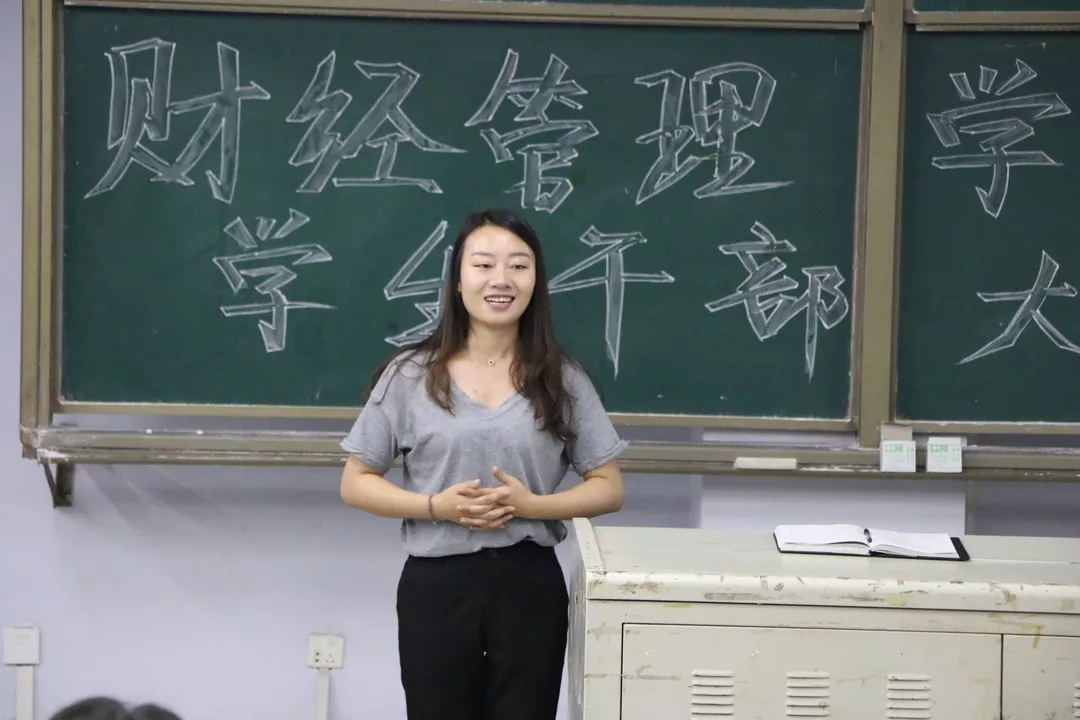 财经管理学
学生干部大